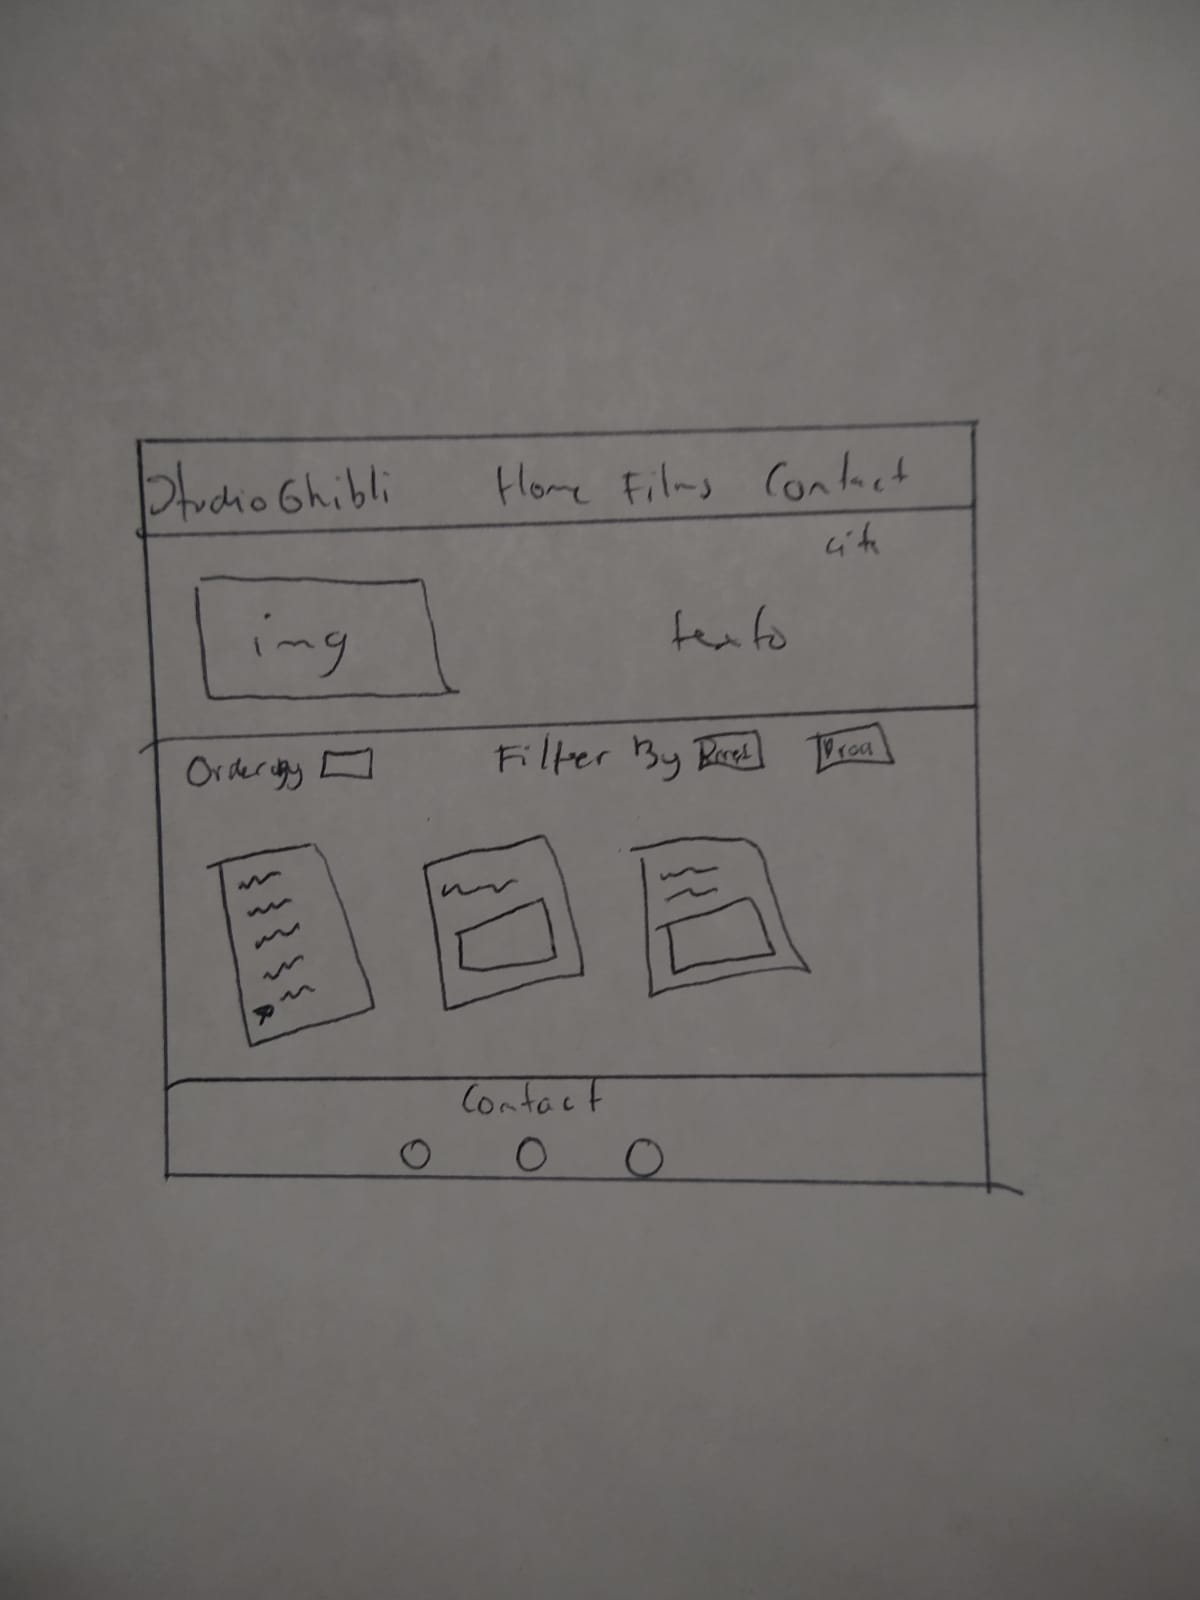 Studio Ghibli Home Films Contact
img
texto
Order By Filter By
Contact